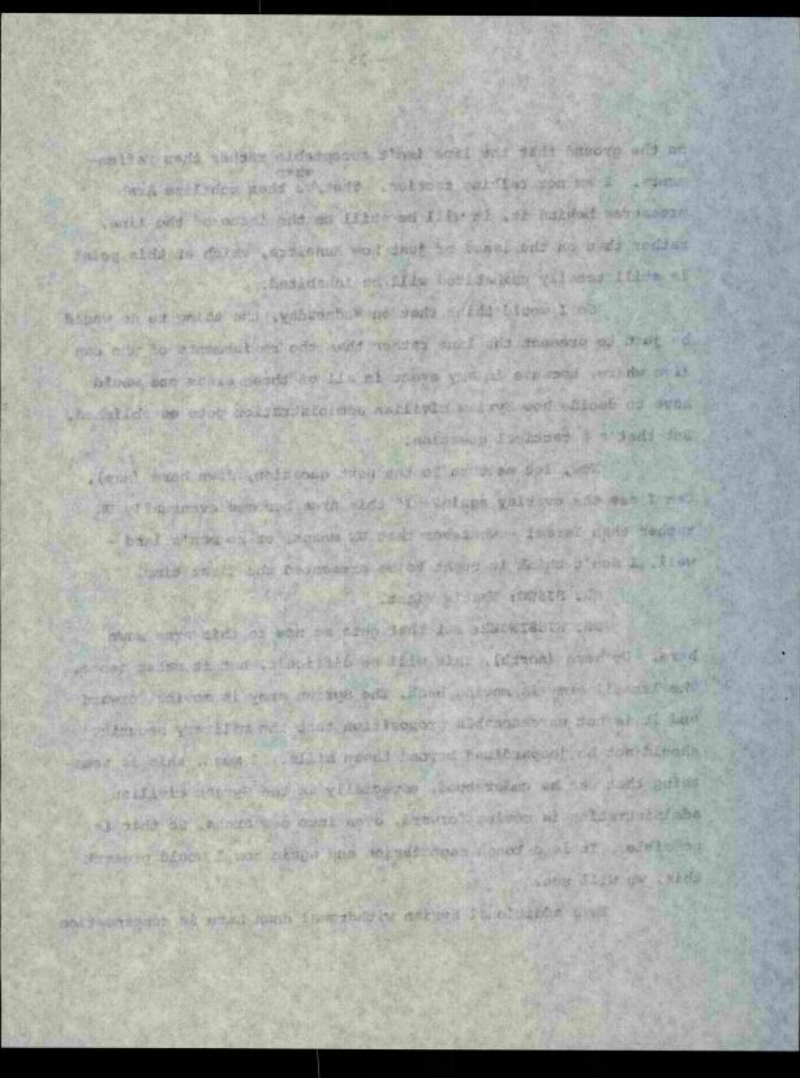 - 25 -
on the ground that the line isn't acceptable rather than
I am not talking tactics. That, when then mobilize Arab
pressures behind it, it will be still on the issue of the line,
rather than on the issue of just how Kuneitra, which at this point
is still totally uninhabited will be inhabited.
So I would think that on Wednesday, the thing to do would
be just to present the line rather than the refinements of who can
live where, because in any event in all of these areas one would
have to decide how Syrian civilian administration gets established.
But that's a tactical question.
Now, let me turn to the next question, down here (map).
Can I see the overlay again? If this area becomes eventually UN
rather than Israel - whatever that UN means, or no man's land -
well, I don't think it ought to be presented the first time.
MR. SISCO: That's right.
DR. KISSINGER: And that gets me now to this area
here. Up here (north), this will be difficult, but it makes sense.
The Israeli army is moving back, the Syrian army is moving forward
and it is not unreasonable proposition that the military security
should not be jeopardized beyond these hills. I mean, this is some-
thing that can be understood, especially as the Syrian civilian
administration is moving forward, even into
possible. It is a tough negotiation and again now I would present
this, we will
This additional Syrian withdrawal down here is